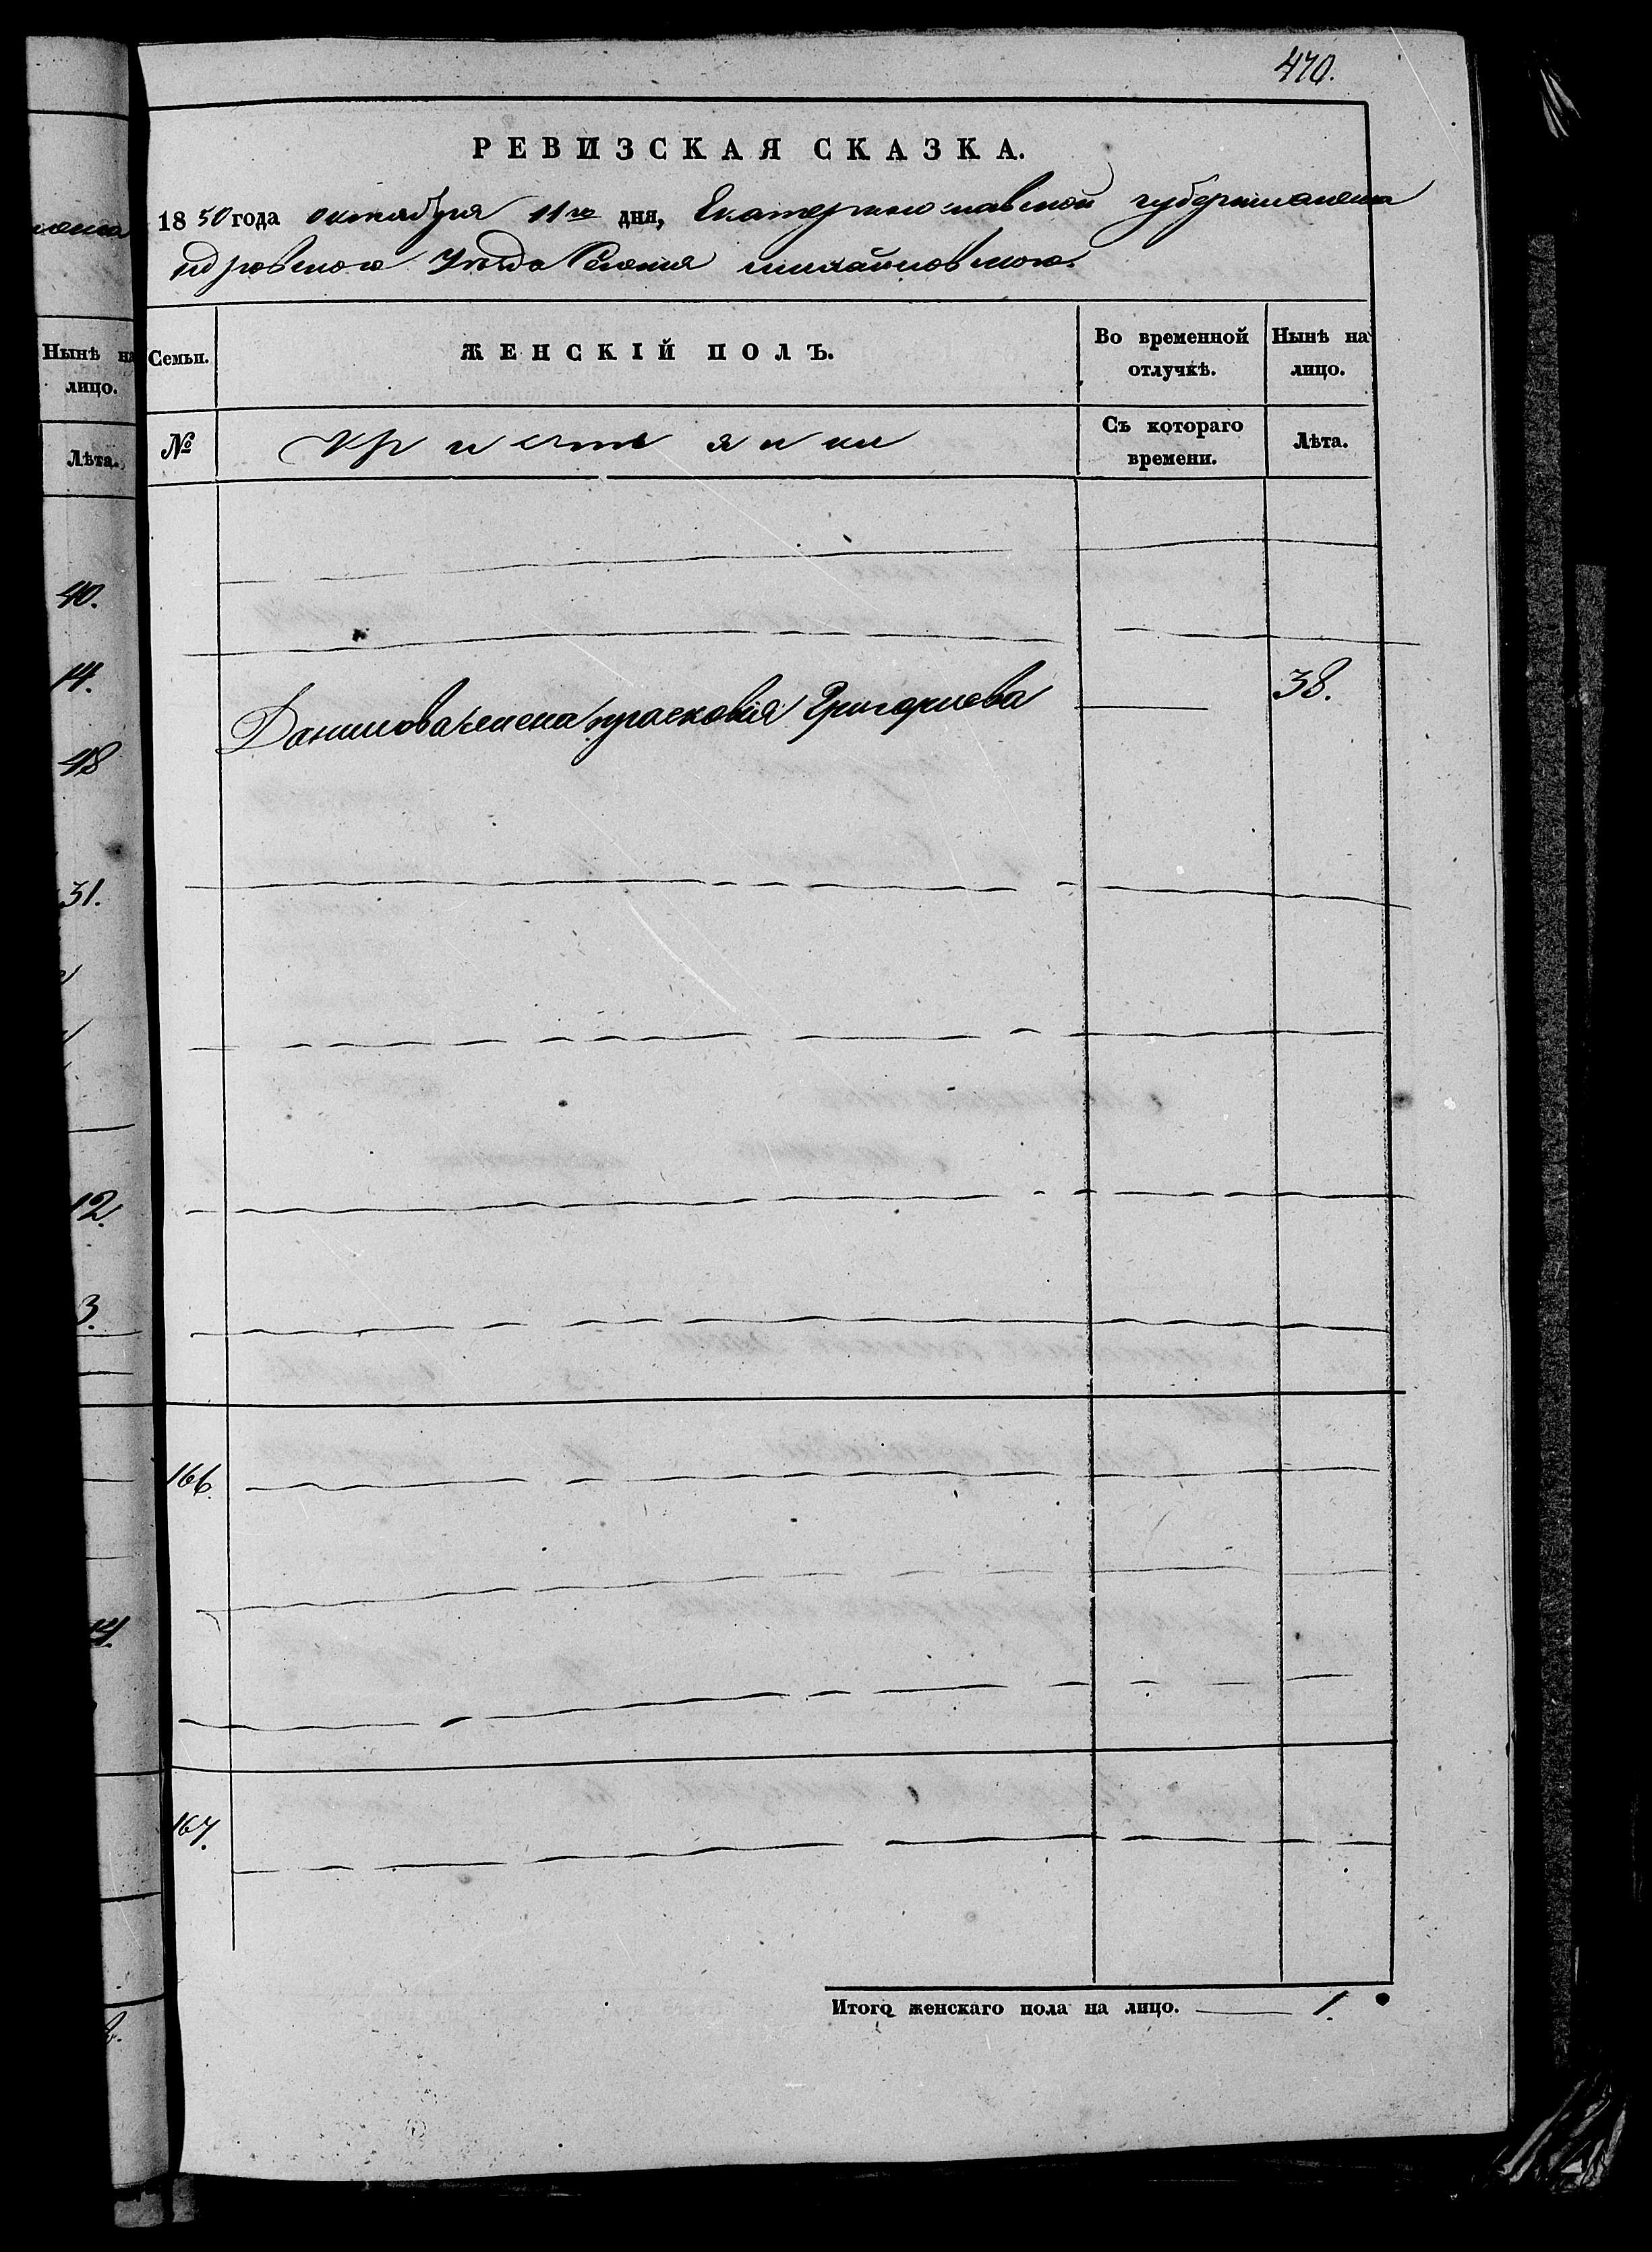 470.
РЕВИЗСКАЯ СКАЗКА.
1850 года октября 11го дня, Екатеринославской губернии алекса
ндровского Уезда Селения михайловского.
Нынѣ на лицо.
Лѣта.
40.
14.
48
31.
12.
3.
Семьи.
ЖЕНСКІЙ ПОЛЪ.
Во временной отлучкѣ.
Нынѣ на лицо.
№
христьянки
Съ котораго времени.
Лѣта.
Данилова жена прасковия Григориева 38.
166.
167.
Итого женскаго пола на лицо. 1.